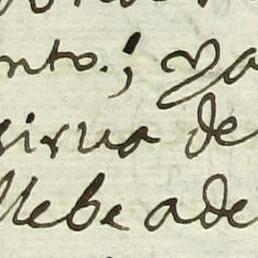 nto.; ya
sirva de
llebe ade